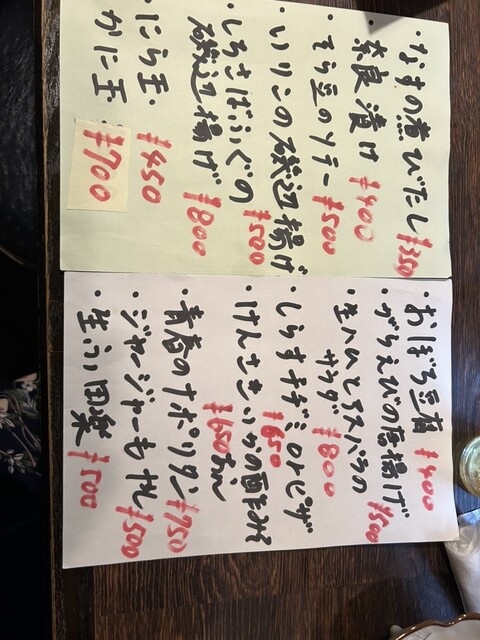 ・なすの煮びたし ¥350
・奈良漬け ¥400
・そら豆のソテー ¥500
・いりこの磯辺揚げ ¥500
・しろさばふぐの
磯辺揚げ ¥800
・にら玉・ ¥450
かに玉・ ¥700
・おぼろ豆腐 ¥400
・がらえびの唐揚げ ¥500
・生ハムとアスパラの
サラダ ¥800
・しらすチヂミorピザ
¥650
・けんさきいかの酢みそ
あえ ¥650
・青春のナポリタン ¥750
・ジャージャーもやし ¥500
・生ふ田楽 ¥500